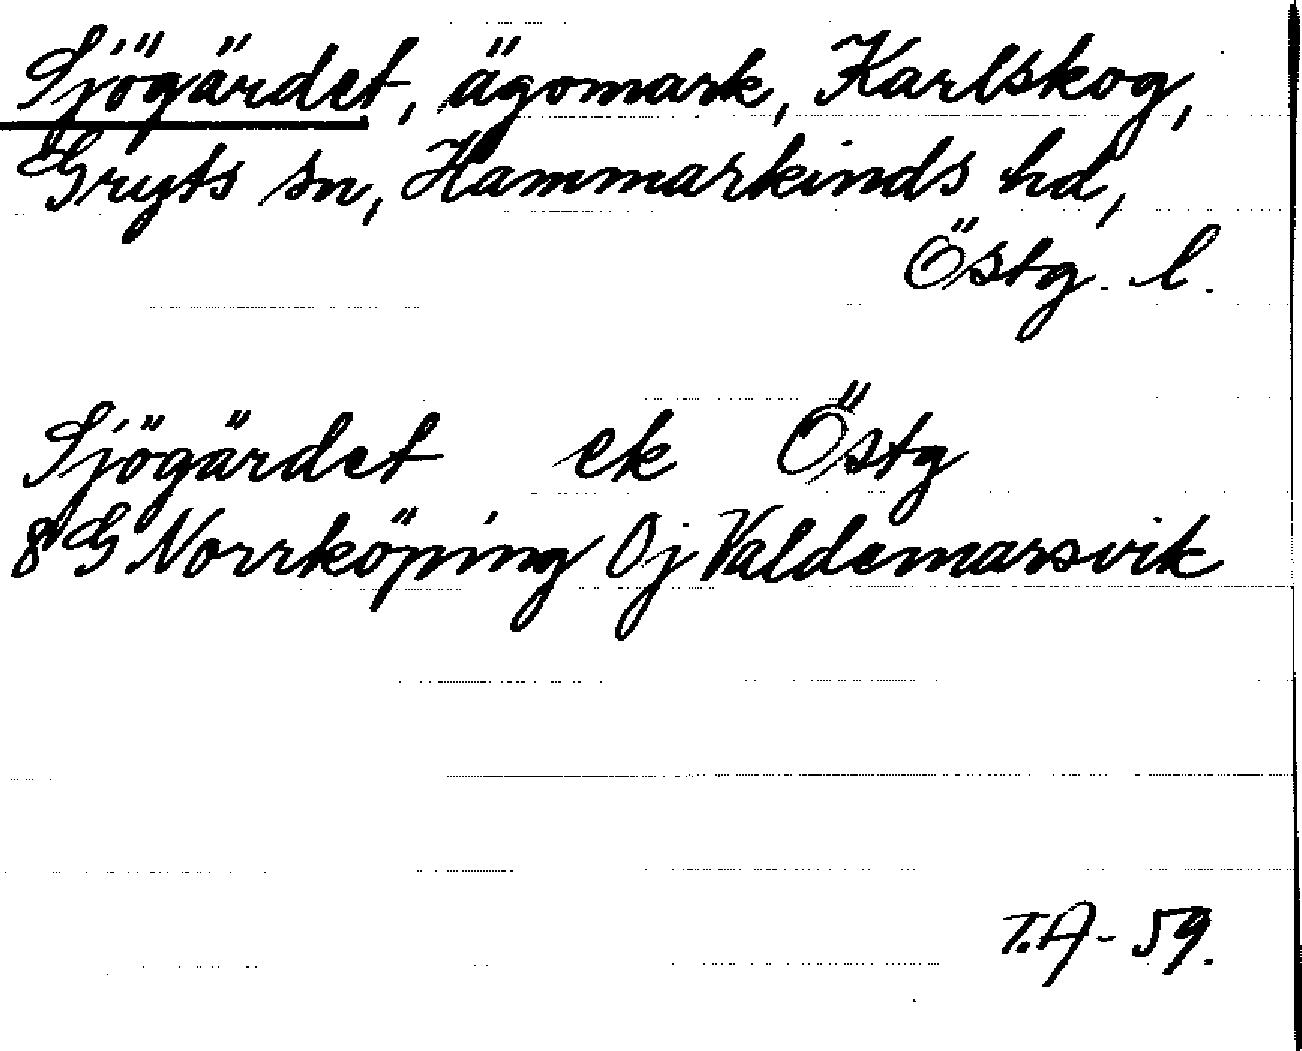 Sjögärdet, ägomark, Karlskog,
Gryts sn, Hammarkinds hd,
Östg. l.
Sjögärdet ek Östg
8 G Norrköping 0j Valdemarsvik
T.A-59.